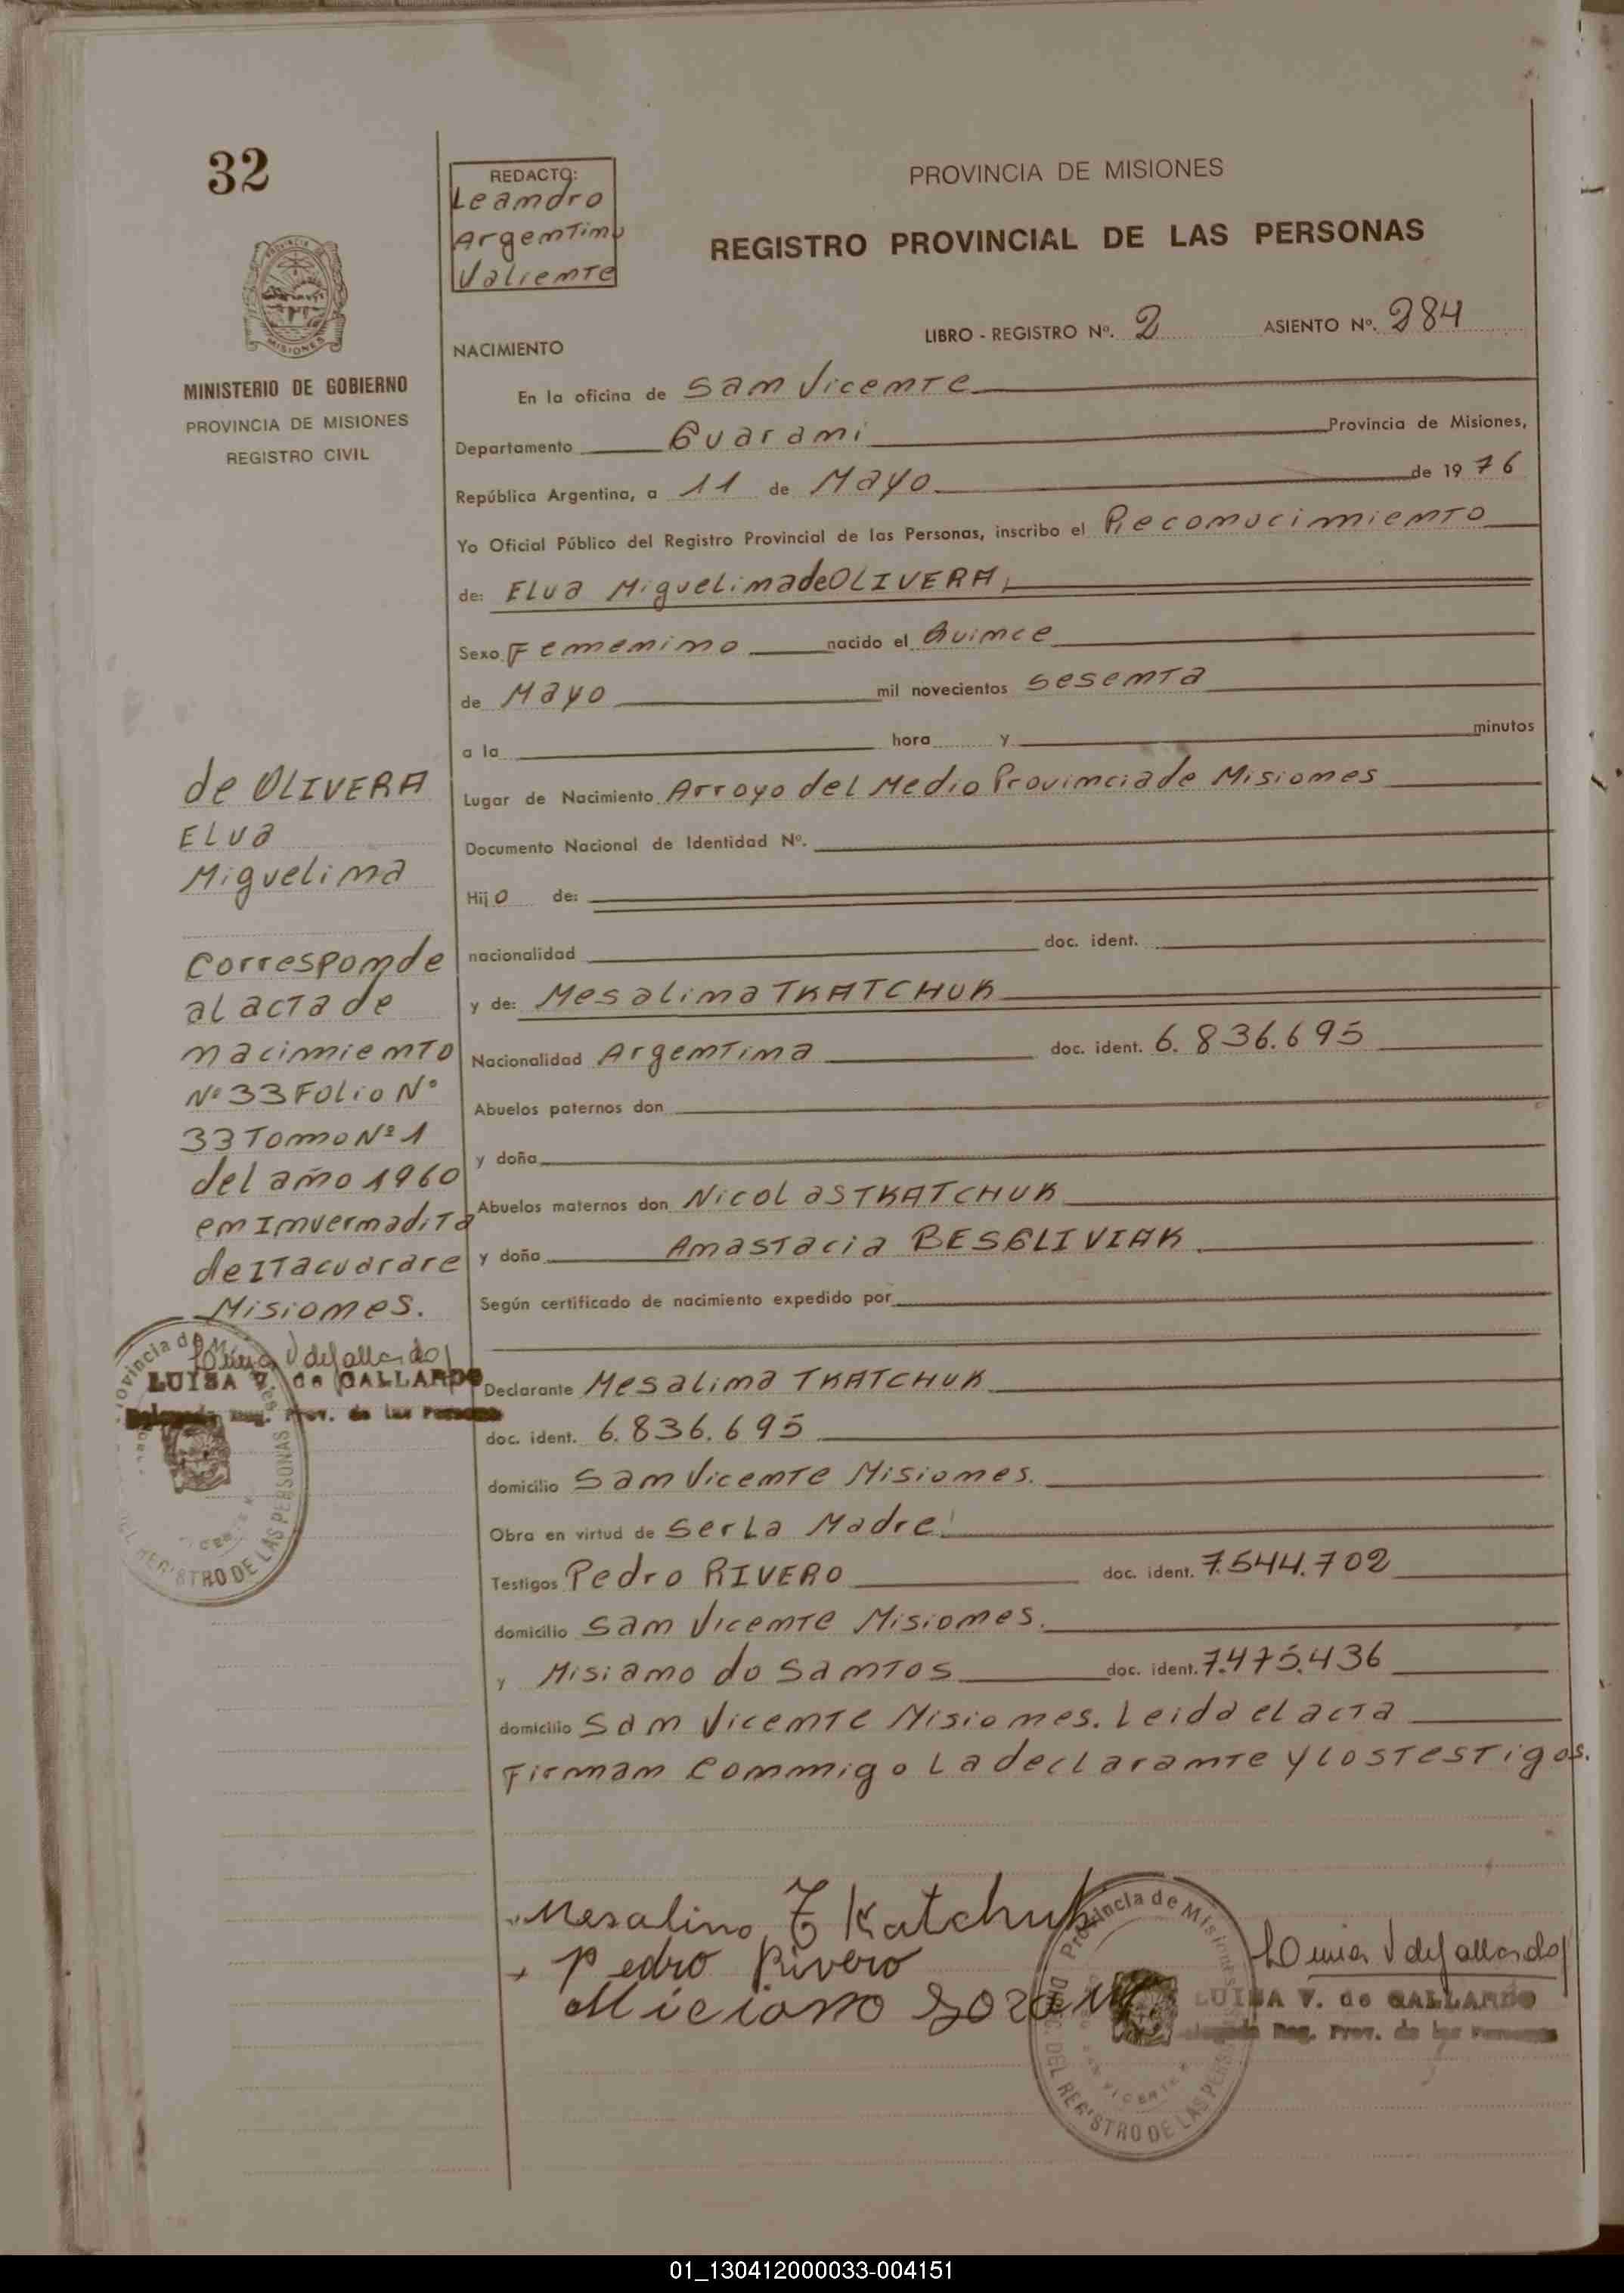 32
REDACTO:
Leandro
Argentino
Valiente
PROVINCIA DE MISIONES
REGISTRO PROVINCIAL DE LAS PERSONAS
LIBRO - REGISTRO Nº. 2 ASIENTO Nº. 284
NACIMIENTO
MISIONES
MINISTERIO DE GOBIERNO
PROVINCIA DE MISIONES
REGISTRO CIVIL
En la oficina de San Vicente
Departamento Guarani Provincia de Misiones,
República Argentina, a 11 de Mayo de 1976
Yo Oficial Público del Registro Provincial de las Personas, inscribo el Reconocimiento
de: Elva Miguelina de OLIVERA,
Sexo Femenino nacido el Quince
de Mayo mil novecientos sesenta
a la hora y minutos
Lugar de Nacimiento Arroyo del Medio Provincia de Misiones
Documento Nacional de Identidad Nº.
Hijo de:
nacionalidad doc. ident.
y de: Mesalina TKATCHUK
Nacionalidad Argentina doc. ident. 6.836.695
Abuelos paternos don
y doña
Abuelos maternos don Nicolas TKATCHUK
y doña Anastacia BESGLIVIAK
Según certificado de nacimiento expedido por
Declarante Mesalina TKATCHUK
doc. ident. 6.836.695
domicilio San Vicente Misiones.
Obra en virtud de ser La Madre
Testigos Pedro RIVERO doc. ident. 7.544.702
domicilio San Vicente Misiones.
y Misiano do Santos doc. ident. 7.475.436
domicilio San Vicente Misiones. Leida el acta
Firman conmigo La declarante y los testigos.
de OLIVERA
Elva
Miguelina
Corresponde
al acta de
nacimiento
Nº 33 Folio Nº
33 Tomo Nº 1
del año 1960
en Invernadita
de Itacuarare
Misiones.
LUISA V. de GALLARDO
Delegada Reg. Prov. de las Personas
Provincia de Misiones
DEL REGISTRO DE LAS PERSONAS
Mesalina Tkatchuk
Pedro Rivero
Provincia de Misiones
DEL REGISTRO DE LAS PERSONAS
SAN VICENTE
LUISA V. de GALLARDO
Delegada Reg. Prov. de las Personas
01_130412000033-004151